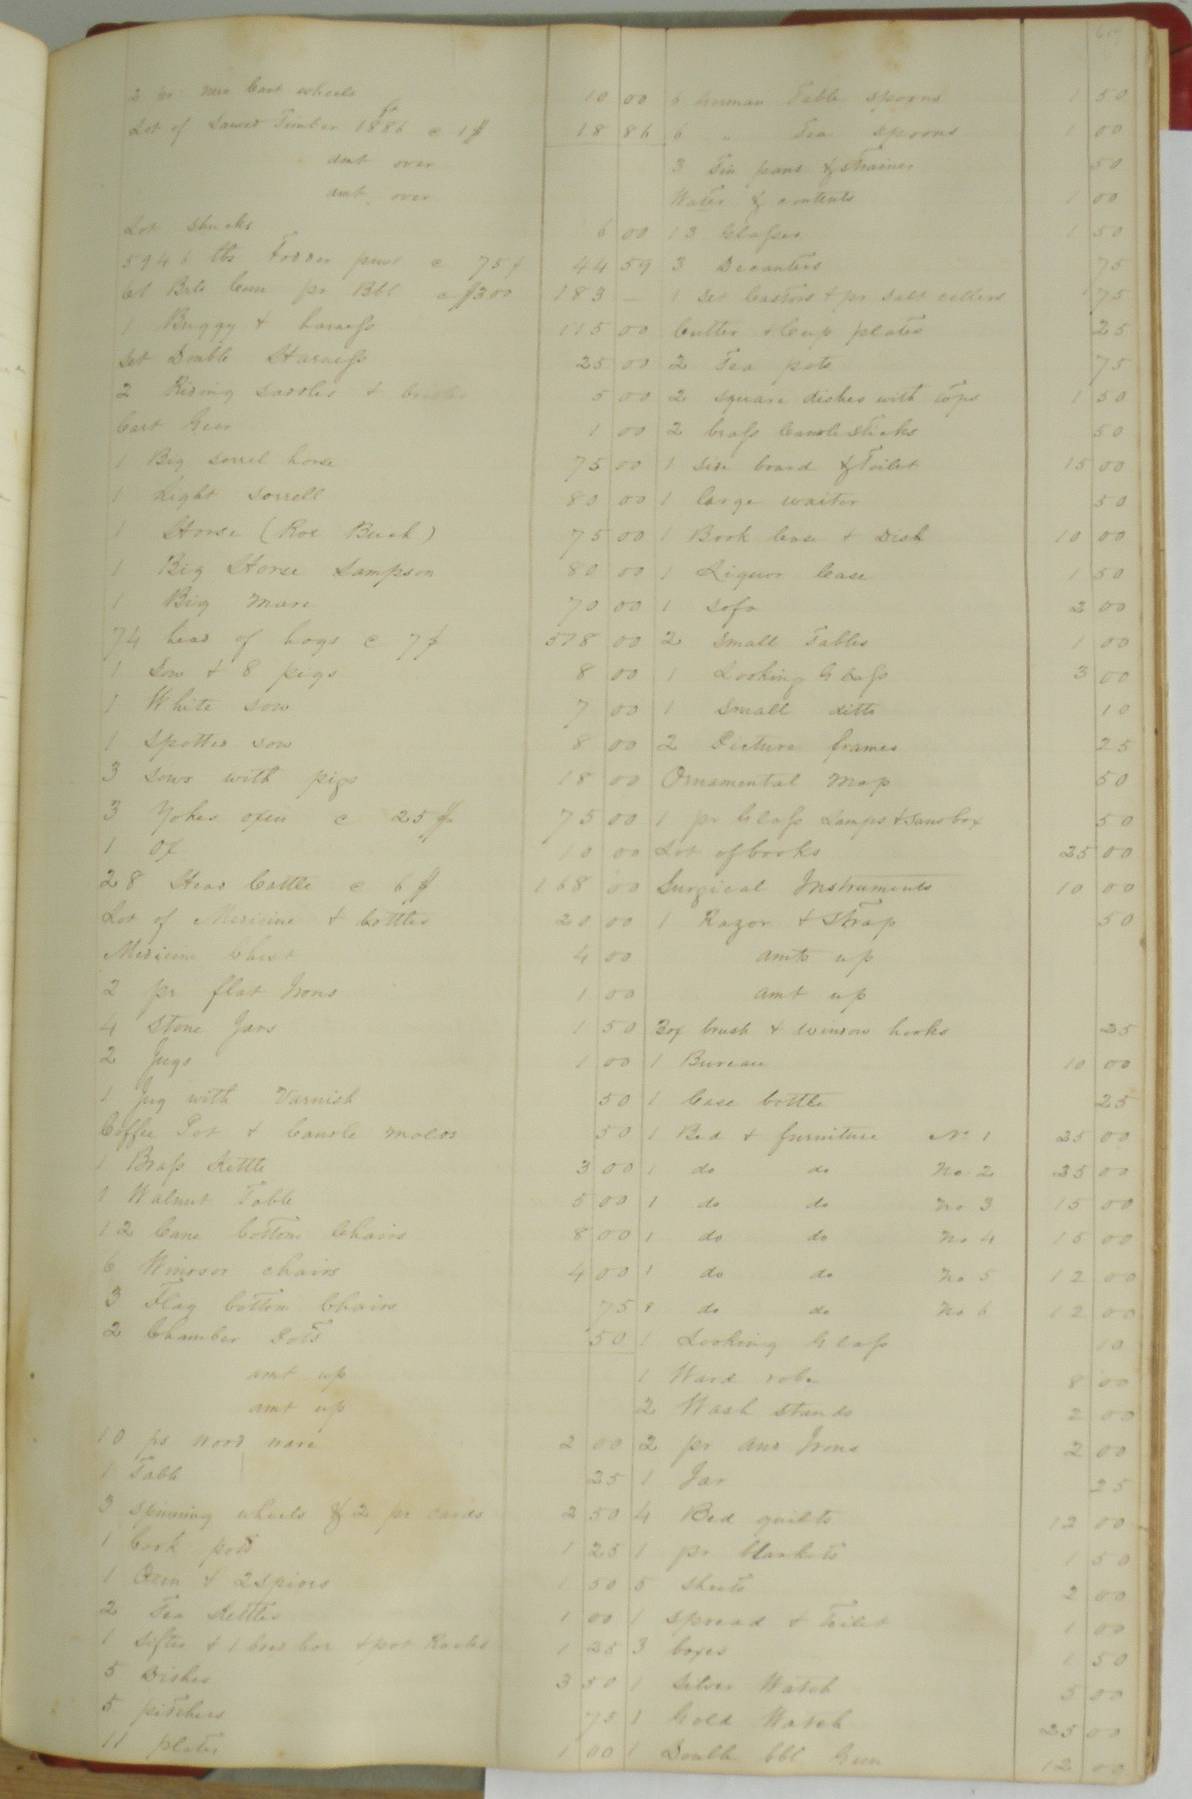 2 pr new Cart wheels 10 00
Lot of Sawed Timber 1886 ft @ 1$ 18 86
amt over
amt over
Lot shucks 6 00
5946 lbs Fodder pens @ 75¢ 44 59
61 Bbls Corn pr Bbl @ $300 183 —
1 Buggy & harness 115 00
Set Double Harness 25 00
2 Riding saddles & bridles 5 00
Cart Geer 1 00
1 Big sorrel horse 75 00
1 Light sorrell 80 00
1 Horse (Roe Buck) 75 00
1 Big Horse Sampson 80 00
1 Big Mare 70 00
74 head of hogs @ 7$ 518 00
1 Sow & 8 pigs 8 00
1 White sow 7 00
1 Spotted sow 8 00
3 sows with pigs 18 00
3 Yokes oxen @ 25$ 75 00
1 Ox 10 00
28 Head Cattle @ 6$ 168 00
Lot of Medicine & bottles 20 00
Medicine Chest 4 00
2 pr flat Irons 1 00
4 Stone Jars 1 50
2 Jugs 1 00
1 Jug with Varnish 50
Coffee Pot & Candle molds 50
1 Brass Kettle 3 00
1 Walnut Table 5 00
12 Cane bottom Chairs 8 00
6 Windsor chairs 4 00
3 Flag bottom Chairs 75
2 Chamber Pots 50
amt up
amt up
10 ps wood ware 2 00
1 Table 25
3 spinning wheels & 2 pr cards 2 50
1 Cook pots 1 25
1 Oven & 2 spiders 1 50
2 Tea Kettles 1 00
1 Sifter & 1 bred box & pot Racks 1 25
5 Dishes 3 50
5 pitchers 75
11 plates 1 00
6 German Table spoons 1 50
6 " Tea spoons 1 00
3 Tin pans & strainer 50
Water & contents 1 00
13 Glasses 1 50
3 Decanters 75
1 Set Castors & pr salt cellers 1 75
Cutter & Cup plates 25
2 Tea pots 75
2 square dishes with tops 1 50
2 brass Candle Sticks 50
1 Side board & Toilet 15 00
1 large waiter 50
1 Book Case & Desk 10 00
1 Liquor Case 1 50
1 Sofa 2 00
2 Small Tables 1 00
1 Looking Glass 3 00
1 Small ditto 10
2 Picture frames 25
Ornamental Map 50
1 pr Glass Lamps & sand box 50
Lot of books 25 00
Surgical Instruments 10 00
1 Razor & Strap 50
amts up
amt up
Box brush & window hooks 25
1 Bureau 10 00
1 Case bottle 25
1 Bed & furniture No 1 25 00
1 do do No 2 25 00
1 do do No 3 15 00
1 do do No 4 15 00
1 do do No 5 12 00
1 do do No 6 12 00
1 Looking Glass 10
1 Ward robe 8 00
2 Wash stands 2 00
2 pr And Irons 2 00
1 Jar 25
4 Bed quilts 12 00
1 pr blankets 1 50
5 sheets 2 00
1 Spread & Toilet 1 00
3 boxes 1 50
1 Silver Watch 5 00
1 Gold Watch 25 00
1 Double bbl Gun 12 00